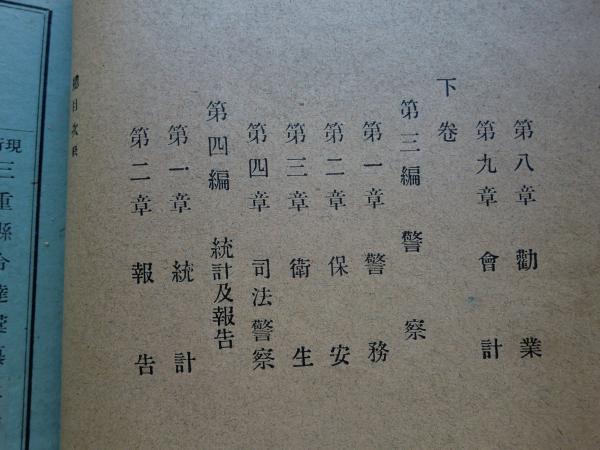 第八章 勸業
第九章 會計
下卷
第三編 警察
第一章 警務
第二章 保安
第三章 衛生
第四章 司法警察
第四編 統計及報告
第一章 統計
第二章 報告
總目次終
現行三重縣令達類纂